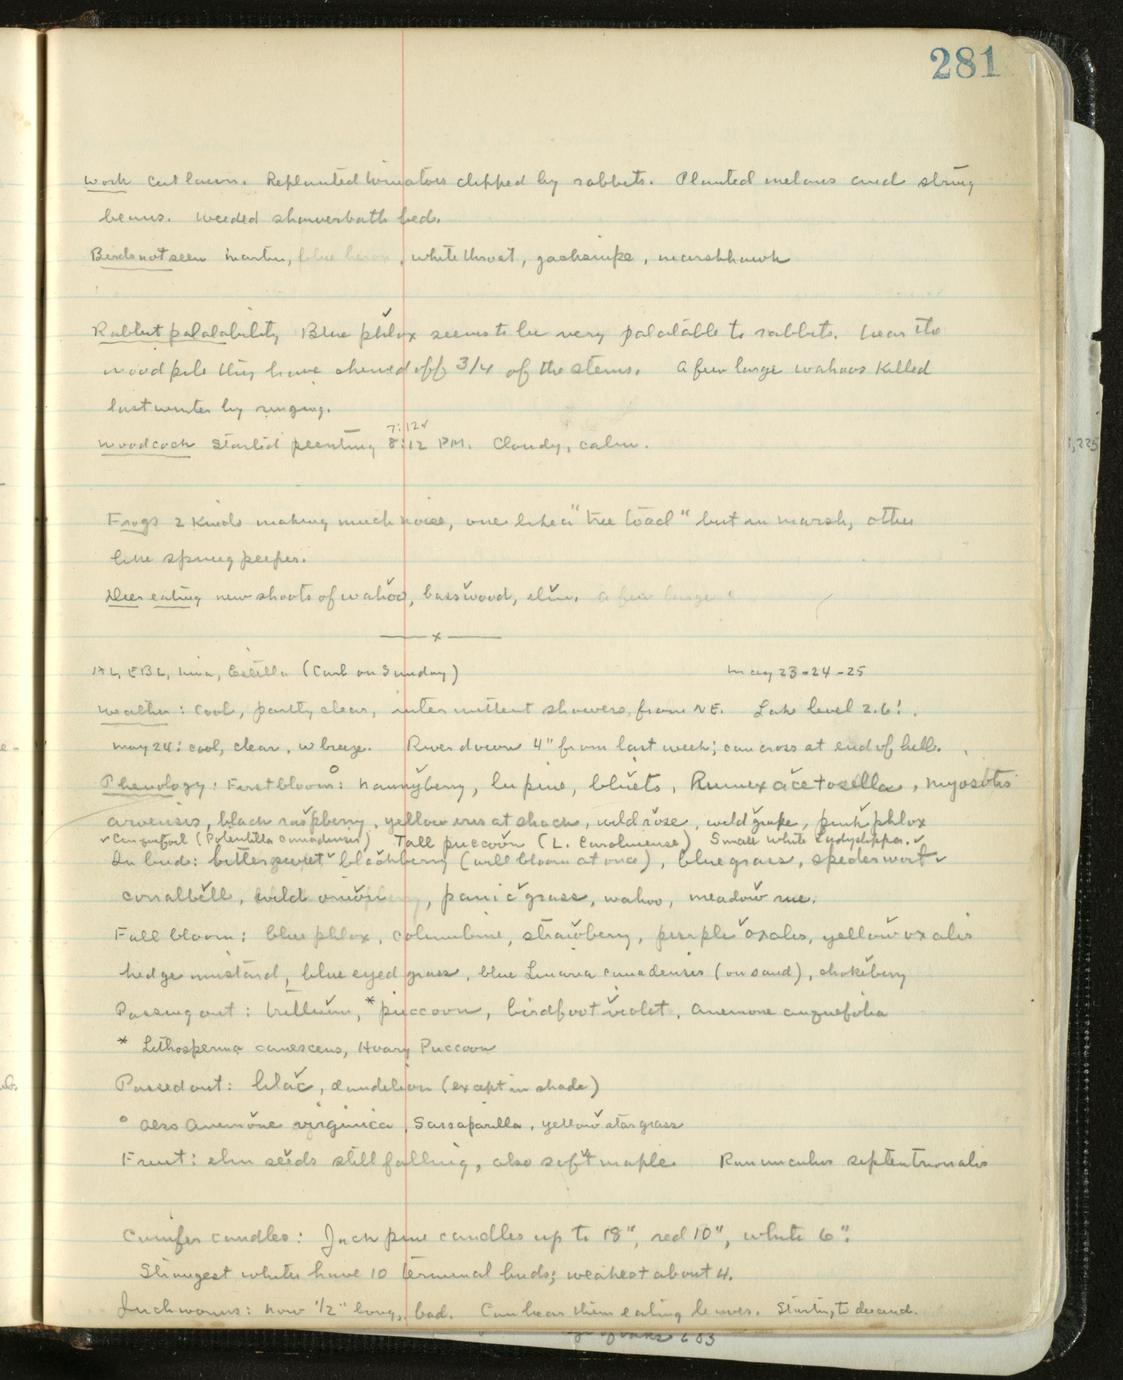 281
Work Cut lawn. Replanted tomatoes clipped by rabbits. Planted melons and string
beans. Weeded showerbath bed.
Birds not seen martin, blue heron, whitethroat, jacksnipe, marshhawk
Rabbit palatability Blue phlox seems to be very palatable to rabbits. Near the
woodpile they have chewed off 3/4 of the stems. A few large wahoos killed
last winter by ringing.
7:12
Woodcock Started peenting 8:12 PM. Cloudy, calm.
Frogs 2 kinds making much noise, one like a "tree toad" but in marsh, other
like spring peeper.
Deer eating new shoots of wahoo, basswood, elm. a few large
x
AL, EBL, Nina, Estella (Carl on Sunday) May 23-24-25
Weather: Cool, partly clear, intermittent showers, from NE. Lake level 2.6'.
May 24: cool, clear, W breeze. River down 4" from last week; can cross at end of hill.
Phenology: First bloom°: Nannyberry, lupine, bluets, Rumex acetosella, myosotis
arvensis, black raspberry, yellow iris at shack, wild rose, wild grape, pink phlox
Cinquefoil (Potentilla canadensis) Tall puccoon (L. Carolinense) Small white Ladyslipper.
In bud: bittersweet blackberry (will bloom at once), bluegrass, spiderwort
corralbell, wild onion, panic grass, wahoo, meadow rue.
Full bloom: blue phlox, columbine, strawberry, purple oxalis, yellow oxalis
hedge mustard, blue eyed grass, blue Linaria canadensis (on sand), chokeberry
Passing out: trillium, *puccoon, birdfoot violet, Anemone cinquefolia
* Lithosperma canescens, Hoary Puccoon
Passed out: lilac, dandelion (except in shade)
° Also Anemone virginica, Sarsaparilla, yellow star grass
Fruit: elm seeds still falling, also soft maple Ranunculus septentrionalis
Conifer candles: Jack pine candles up to 18", red 10", white 6".
Strongest whites have 10 terminal buds; weakest about 4.
Inchworms: now 1/2" long, bad. Can hear them eating leaves. Starting to descend.